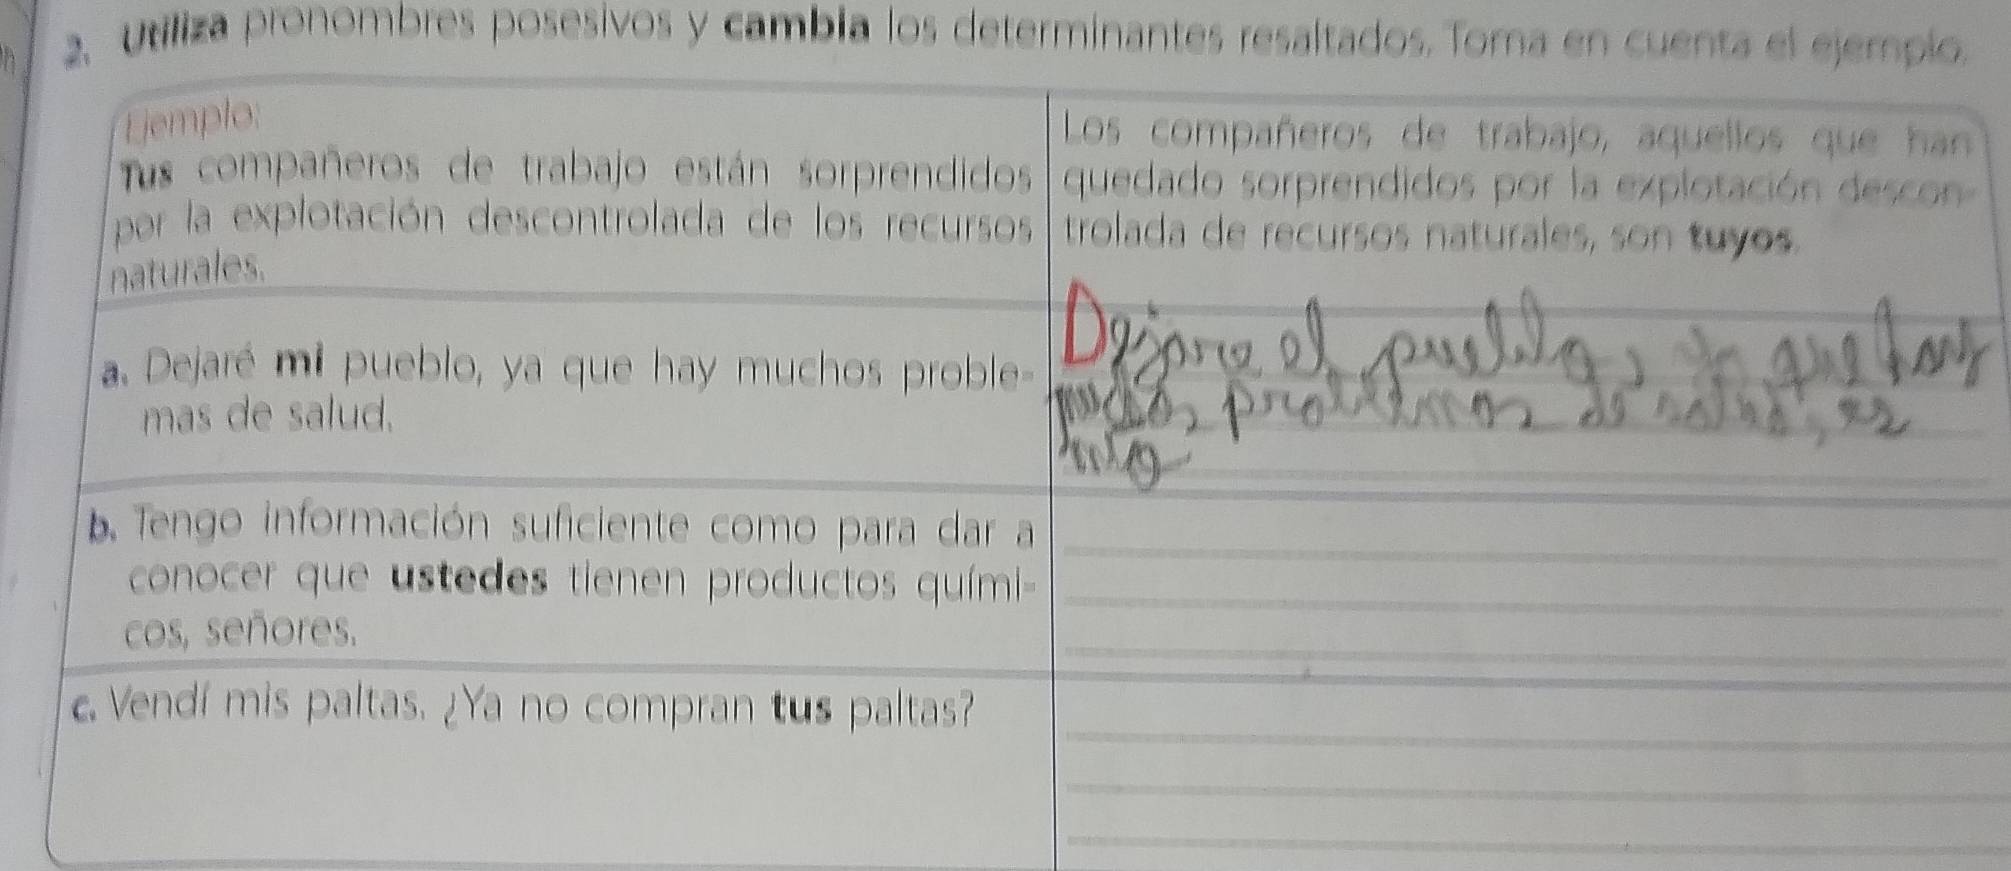 2. Utiliza pronombres posesivos y cambia los determinantes resaltados. Toma en cuenta el ejemplo.
Ejemplo:
Tus compañeros de trabajo están sorprendidos
por la explotación descontrolada de los recursos
naturales.
Los compañeros de trabajo, aquellos que han
quedado sorprendidos por la explotación descon-
trolada de recursos naturales, son tuyos.
a. Dejaré mi pueblo, ya que hay muchos proble-
mas de salud.
Dejare el pueblo, ya que hay
muchos problemas de salud, es
b. Tengo información suficiente como para dar a
conocer que ustedes tienen productos quími-
cos, señores.
c. Vendí mis paltas. ¿Ya no compran tus paltas?